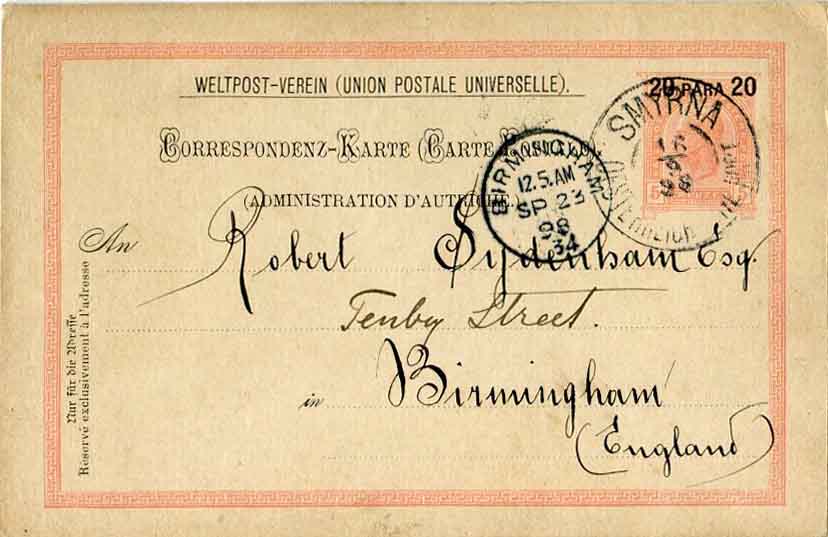 WELTPOST-VEREIN (UNION POSTALE UNIVERSELLE).
20 PARA 20
CORRESPONDENZ-KARTE (CARTE POSTALE).
(ADMINISTRATION D'AUTRICHE.)
SMYRNA
BIRMINGHAM
12.5.AM
SP 23
98
34
An Robert Sydenham Esq.
Tenby Street.
in Birmingham
(England)
Nur für die Adresse
Réservé exclusivement à l'adresse